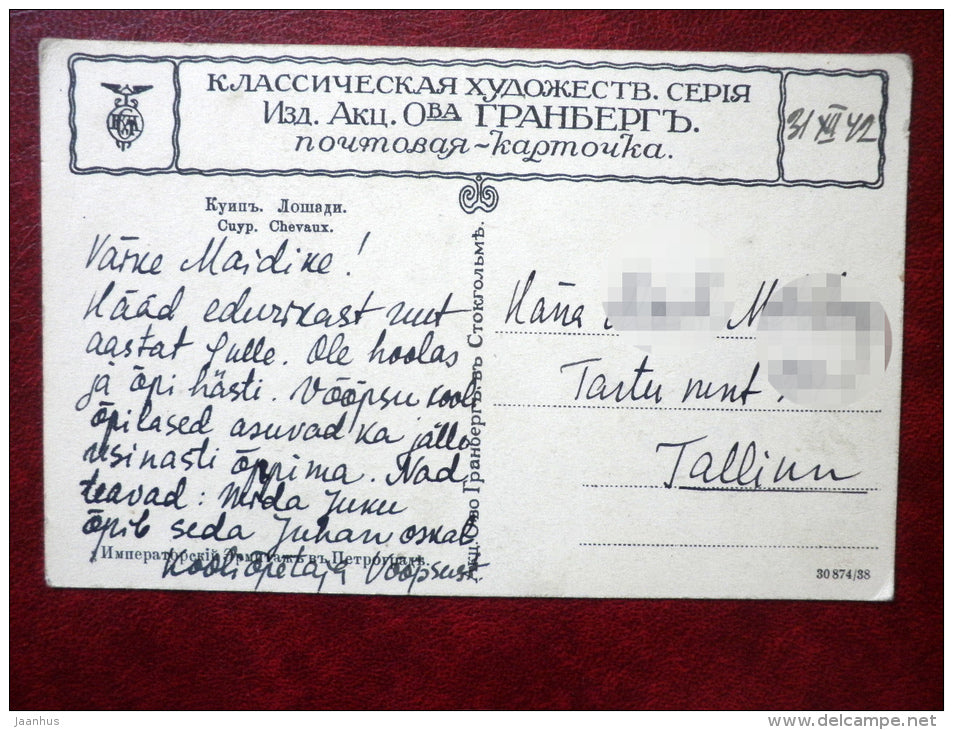 КЛАССИЧЕСКАЯ ХУДОЖЕСТВ. СЕРІЯ
Изд. Акц. Ова ГРАНБЕРГЪ.
почтовая-карточка.
31 XII 42
Куипъ. Лошади.
Cuyp. Chevaux.
Väike Maidike!
Hääd edurikast uut
aastat Sulle. Ole hoolas
ja õpi hästi. Võõpsu kooli
õpilased asuvad ka jälle
usinasti õppima. Nad
teavad: mida Juku
õpib seda Juhan oskab
Kooliõpetaja Võõpsust
Императорскій Эрмитажъ въ Петроградѣ.
Акц. О-во Гранбергъ въ Стокгольмѣ.
Tartu mnt
Tallinn
30874/38
Jaanhus
www.delcampe.net